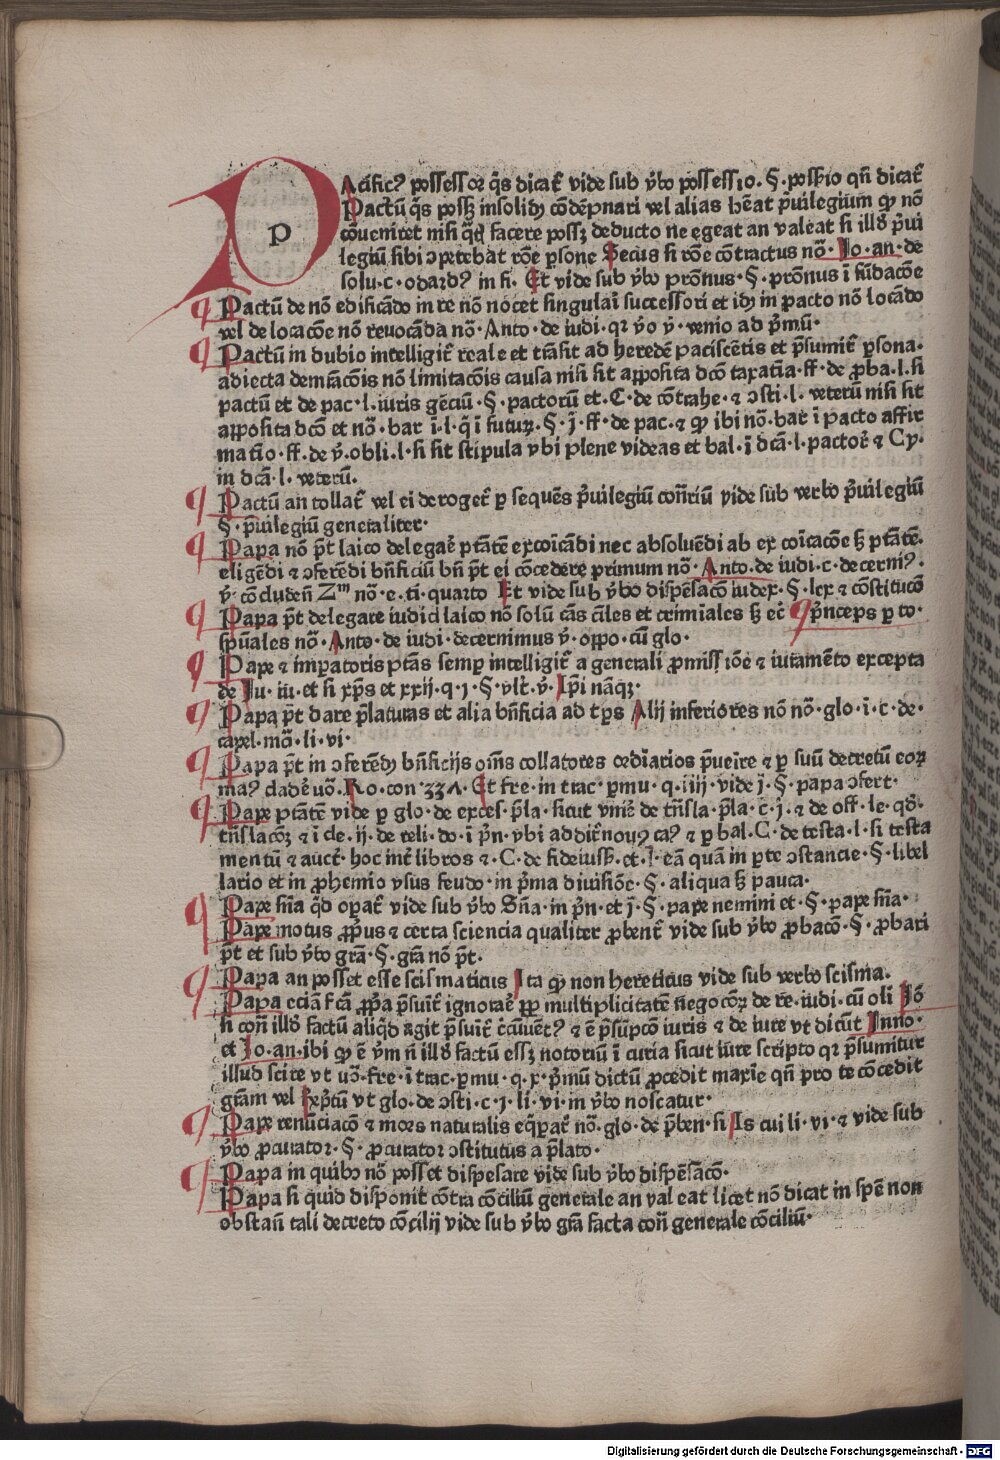 p
Acific⁹ possessor q̃s dicat᷑ vide sub v̾bo possessio. §. possꝫio qn̄ dicat᷑
Pactū q̃s possꝫ insolidꝫ cōdēpnari vel alias hēat p̾uilegium qꝫ nō
cōueniret nisi q̄d facere possꝫ deducto ne egeat an valeat si ill᷑o p̾ui
legiū sibi ɔpetebat rōe p̱sone Secus si rōe cōtractus nō· Jo·an·de
solu·c·odard⁹ in fi. Et vide sub v̾bo prōnus·§·prōnus ī fūdacōe
Pactū de nō edificādo in re nō nocet singulari successori et idꝫ in pacto nō locādo
vel de locacōe nō reuocāda nō·Anto·de iudi·qꝛ v̾o ꝟ·venio ad p̾mū·
Pactū in dubio intelligit᷑ reale et trāsit ad heredē paciscētis et p̄sumit᷑ p̱sona·
adiecta demr̄acōis nō limitacōis causa nisi sit apposita dcō taxatīa·ff·de ꝓba·l·si
pactū et de pac·l·iuris gēciū·§·pactorū et·C·de cōtrahe·⁊ ɔsti·l·veterū nisi sit
apposita dcō et nō·bar ī·l·q̄ ī futuꝝ·§·j·ff·de pac·⁊ qꝫ ibi nō·bar ī pacto affir
matīo·ff·de ꝟ·obli·l·si sit stipula vbi plene videas et bal·ī dc̄a·l·pactoꝝ ⁊ Cy·
in dc̄a·l·veterū.
Pactū an tollat᷑ vel ei deroget᷑ p̱ sequēs p̾uilegiū con̄riū vide sub verbo p̾uilegiū
§·p̾uilegiū generaliter·
Papa nō p̄t laico delegaē ptātē excoīcādi nec absoluēdi ab ex coīcacōe sꝫ ptātē·
eligēdi ⁊ ɔferēdi bn̄ficiū bn̄ p̄t ei cōcedere primum nō·Anto·de iudi·c·decerni⁹·
ꝟ·cōcluden̄ Zᵐ nō·e·ti·quarto Et vide sub v̾bo dispēsacō iudex·§·lex ⁊ cōstitucō
Papa p̄t delegare iudici laico nō solū cās ciles et crimiales sꝫ ec̄ p̾nceps p̱ to·
spūales nō·Anto·de iudi·decernimus ꝟ·oppo·cū glo·
Pape ⁊ imparatoris ptās semp̱ intelligit᷑ a generali promissiōe ⁊ iuramēto excepta
de Ju·iu·et si xp̄s et xxij·q·j·§·vlt᷑·ꝟ·Ip̄i nāqꝫ·
Papa p̄t dare p̄laturas et alia bn̄ficia ad tp̄s Alij inferiores nō nō·glo·ī·c·de·
capel·mōa·li·vi·
Papa p̄t in ɔferēdꝫ bn̄ficijs om̄s collatores ordīarios p̄ueīre ⁊ p̱ suū decretū eoꝝ
ma⁹ dādē vō·Ro·con·331·Et fre·in trac·p̱mu·q·iiij·vide j·§·papa ɔfert·
Pape ptātē vide p̱ glo·de exces·p̄la·sicut vnir̄ de trn̄sla·p̄la·c·j·⁊ de off·le·qō·
trn̄slacōꝫ ⁊ ī cle·ij·de reli·do·ī p̄n·vbi addit᷑nouꝯ ca⁹ ⁊ p̱ bal·C·de testa·l·si testa
mentū ⁊ auct·hoc int᷑ libros ⁊·C·de fideiusꝫ·et·J·eā quā in p̱te ɔstancie·§·libel
lario et in ꝓhemio vsus feudo·in p̾ma diuisiōe·§·aliqua sꝫ pauca·
Pape sn̄ia q̄d operat᷑ vide sub v̾bo Sn̄a·in p̄n·et j·§·pape nemini et·§·pape sn̄ia·
Pape motus ꝓp̾us ⁊ certa sciencia qualiter ꝓbent᷑ vide sub v̾bo ꝓbacō·§·ꝓbari
p̄t et sub v̾bo grā·§·grā nō p̄t·
Papa an posset esse scismaticus Ita qꝫ non hereticus vide sub verbo scisma·
Papa eciā fc̄ā ꝓp̾a p̄suīt᷑ ignoraē ꝓp̱ multiplicitatē negocōꝝ de re·iudi·cū oli Jō
si con̄ ill᷑o factū aliq̄d agit p̄suīt᷑ c̄cūuēt⁹ ⁊ ē p̄sūpcō iuris ⁊ de iure vt dicūt Inno·
et Jo·an·ibi qꝫ ē v̾m n̄ ill᷑o factū essꝫ notoriū ī curia sicut iure scripto qꝛ p̄sumitur
illud scire vt vō·fre·ī trac·p̱mu·q·x·p̾mū dictū ꝓcedit maxīe qn̄ pro te cōcedit
grām vel Exp̄tū vt glo·de ɔsti·c·j·li·vi·in v̾bo noscatur·
Pape renūciacō ⁊ mors naturalis eqp̱at᷑ nō·glo·de p̄ben·si Is cui li·vi·⁊ vide sub
v̾bo ꝓcurator·§·ꝓcurator ɔstitutus a p̄lato·
Papa in quibꝯ nō posset dispesare vide sub v̾bo dispēsacō·
Papa si quid disponit cōtra cōciliū generale an valeat licet nō dicat in spē non
obstan̄ tali decreto cōcilij vide sub v̾bo grā facta con̄ generale cōciliū·
Digitalisierung gefördert durch die Deutsche Forschungsgemeinschaft - DFG